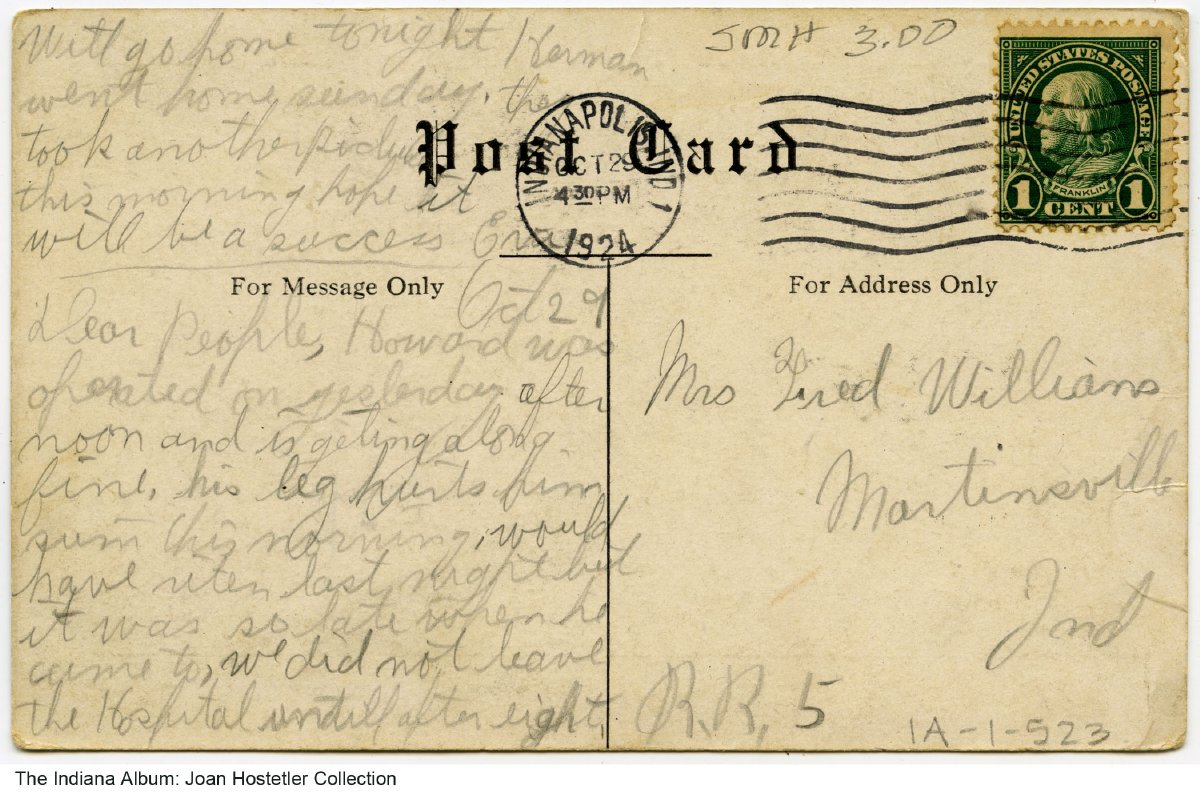 Will go home tonight Herman
went home sunday. they
took another pictur
this morning hope it
will be a success Eva
Post Card
For Message Only
Oct 29
Dear People, Howard was
operated on yesterday after
noon and is geting along
fine, his leg hurts him
sum this morning, would
have riten last night but
it was so late when he
came to, we did not leave
the Hospital untill after eight,
JMH 3.00
INDIANAPOLIS, IND. 1
OCT 29
4 30 PM
1924
UNITED STATES POSTAGE
FRANKLIN
1 CENT 1
For Address Only
Mrs Fred Williams
Martinsville
Ind
R.R. 5
IA-1-523
The Indiana Album: Joan Hostetler Collection